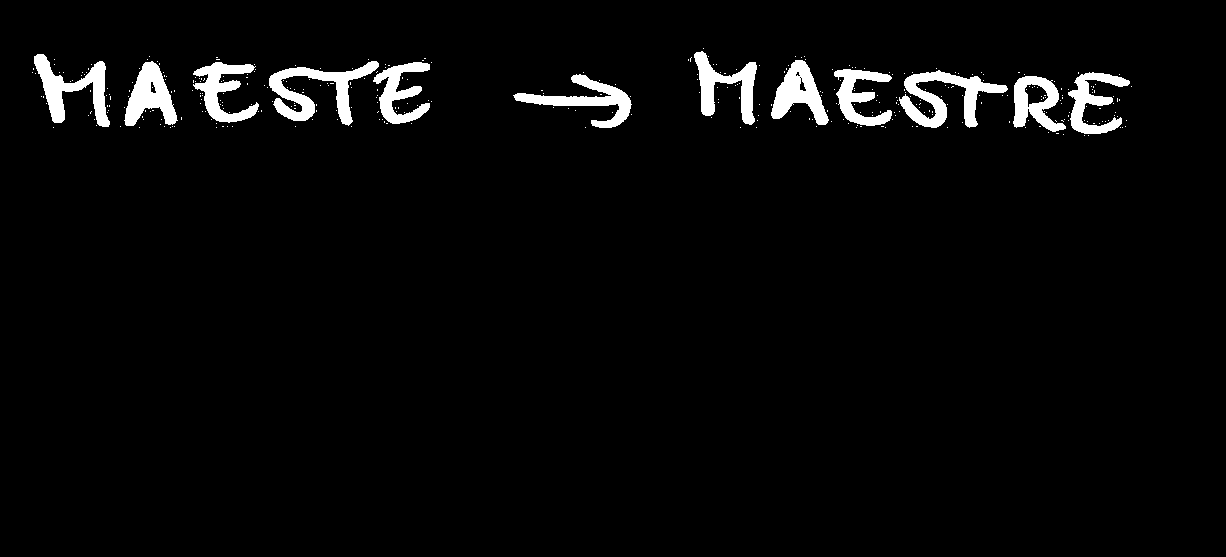 MAESTE → MAESTRE